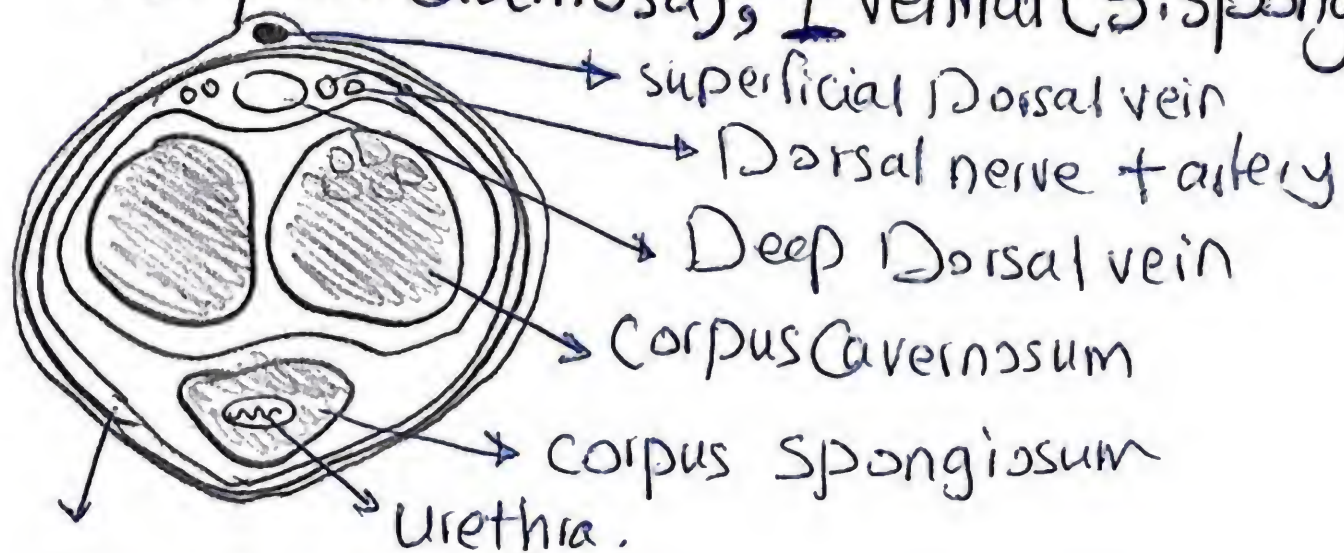 1 ventral (S.spong
superficial Dorsal vein
Dorsal nerve + artery
Deep Dorsal vein
Corpus Cavernosum
corpus spongiosum
urethra.